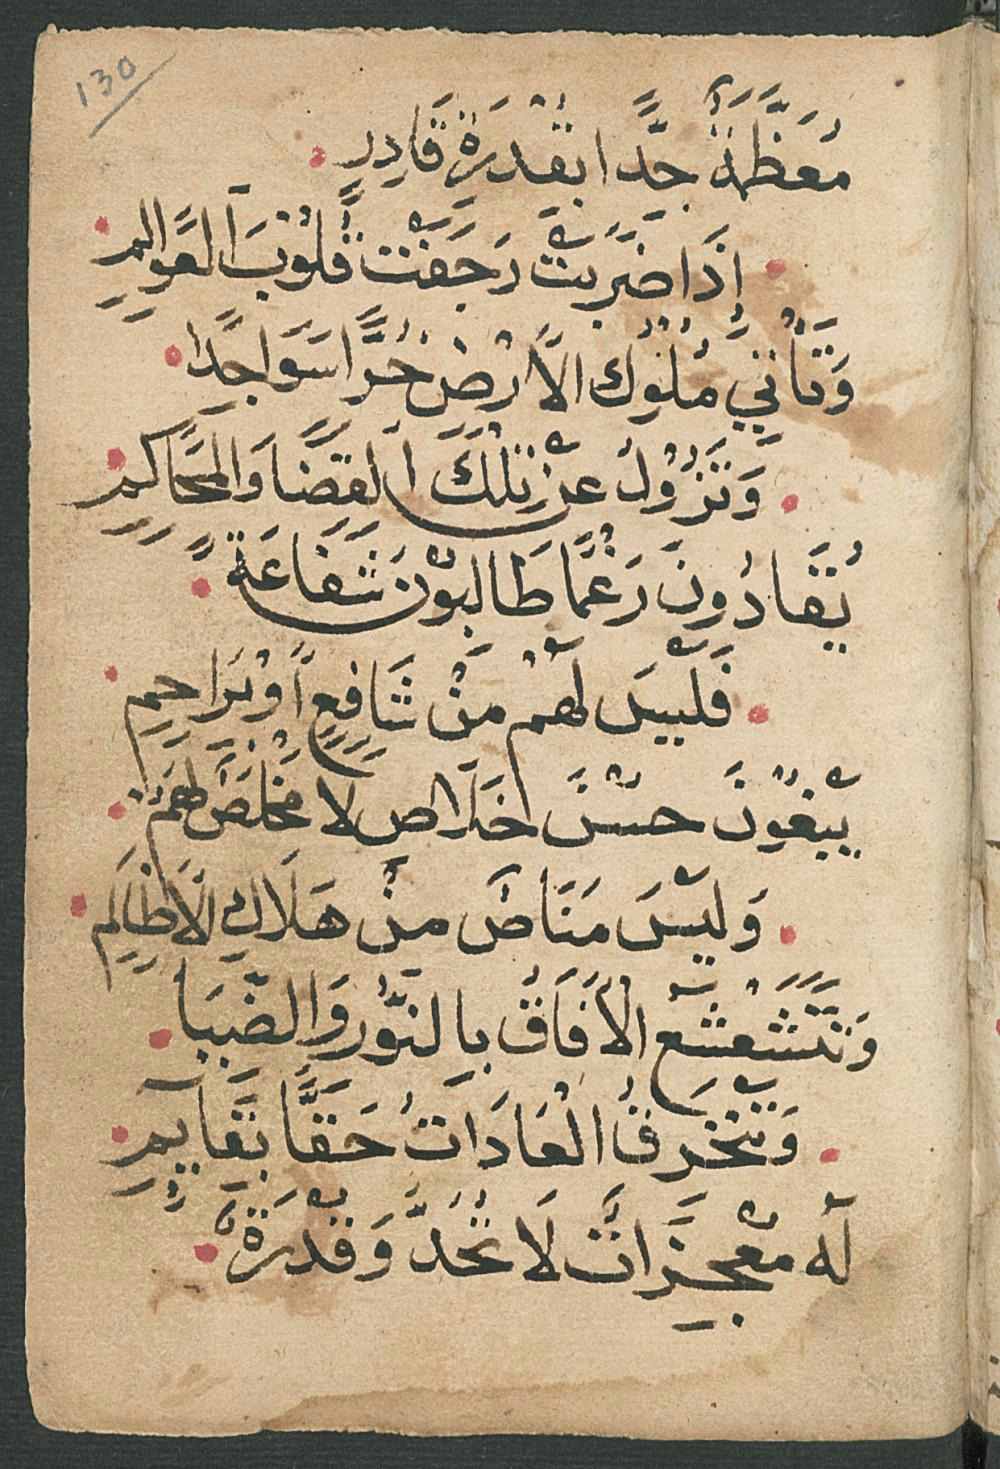 130
مُعَظَّمَةً جِدَّا ابقُدرَةِ قَادِرٍ
إِذَا ضَرَبَتْ رَجَفَتْ قُلُوبَ العَوَالِمِ
وَتَأتِي مُلُوك الاَرْضُ خُرَّا سَوَاجِدًا
وَتَزُولُ عَنْ تِلْكَ القَضَا وَالمَحَاكِمِ
يُقَادُونَ رَغْمًا طَالِبُوْنَ شَفَاعَةً
فَلَيْسَ لَهُمْ مِنْ شَافِعٍ أَوْ بَرَاحِمِ
يَبْغُوْنَ حُسْنَ اخَلَاص لا مَخْلَصَ لَهُمْ
وَلَيْسَ مَنَاصٌ مِنْ هَلَاكِ الْاَظَالِمِ
وَتَتَشَعْشَع الْاَفَاقُ بِالنُّورِ وَالضِّيَا
وَتَنْخَرِقُ الْعَادَاتُ حَقًّا بِقَايِمِ
لَه مُعْجِزَاتٌ لَا تُحَدُّ وَقُدْرَةٌ